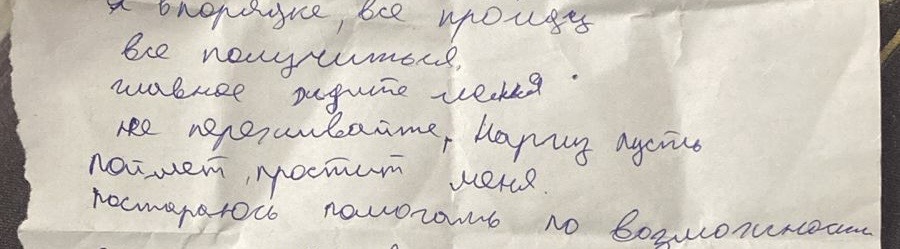 я впорядке, все пройду
все получиться,
главное ждите меня.
не переживайте, Наргиз пусть
поймет, простит меня.
постараюсь помогать по возможности